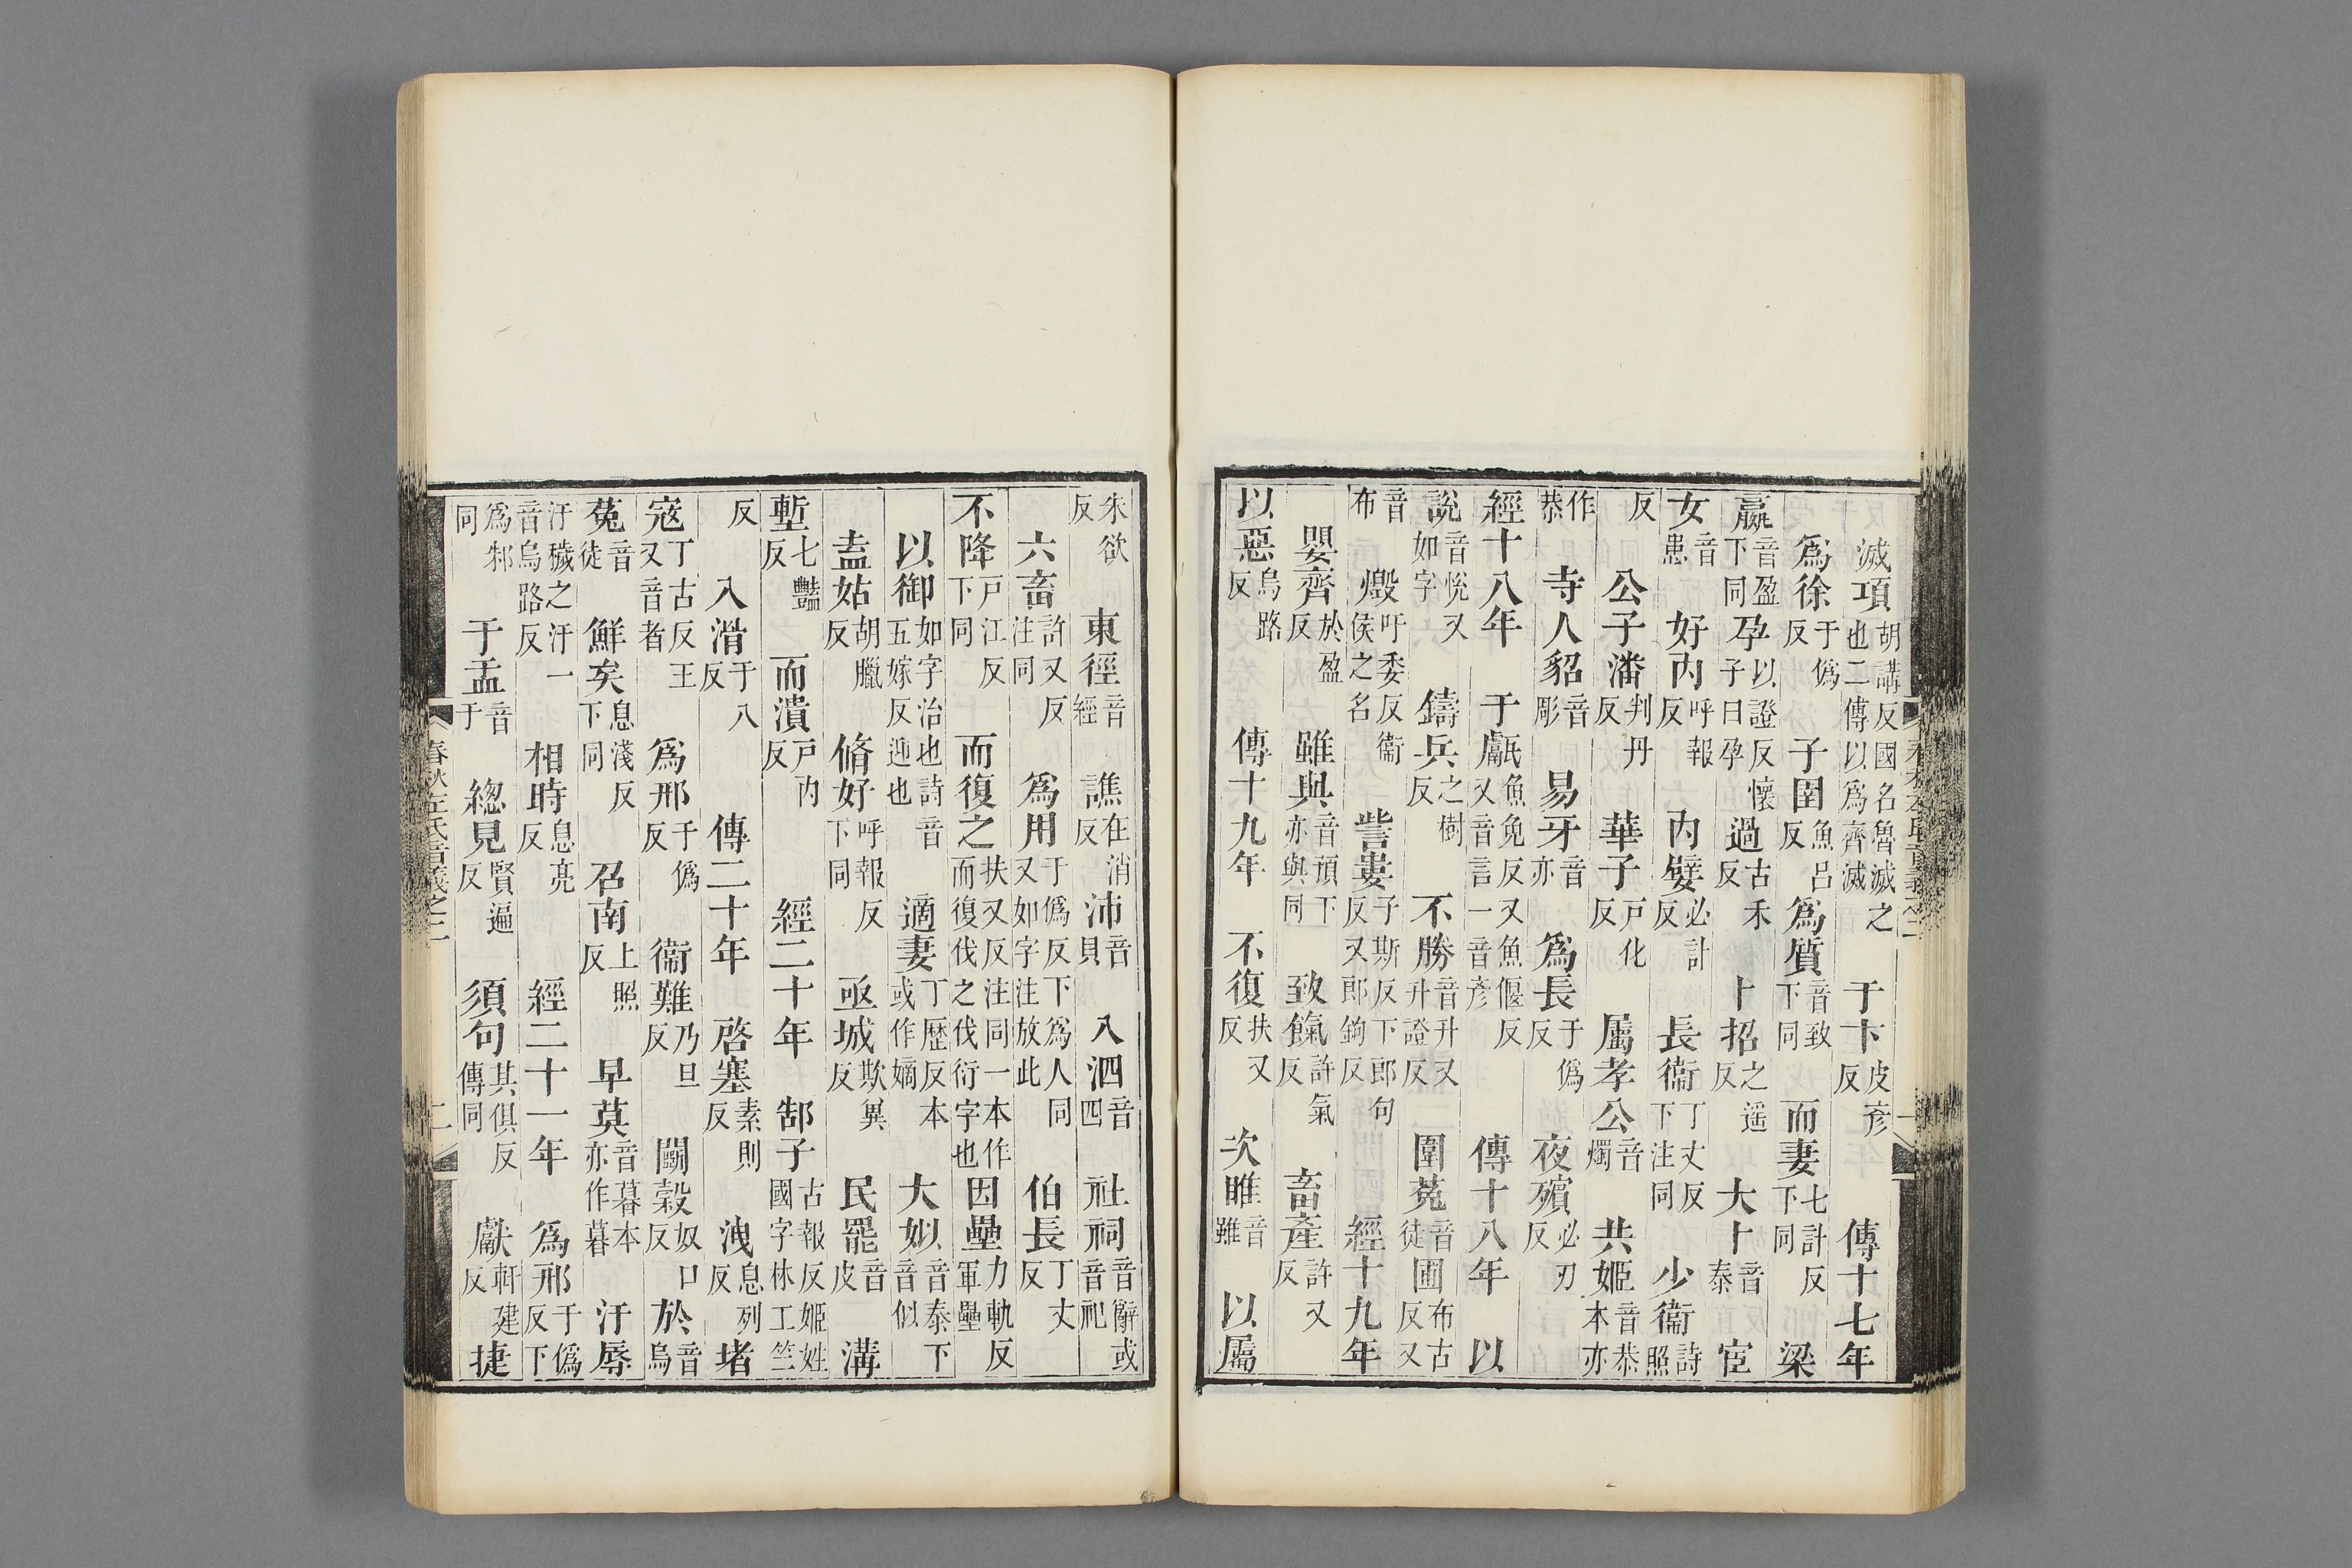 滅項胡講反國名魯滅之也二傳以爲齊滅　于卞皮彥反　傳十七年
爲徐于僞反　子圉魚呂反　爲質音致下同　而妻七計反下同　梁
嬴音盈下同　孕以證反懷子曰孕　過古禾反　卜招之遥反　大卜音泰　宦
女音患　好內呼報反　內嬖必計反　長衞丁丈反下注同　少衞詩照
反　公子潘判丹反　華子戶化反　屬孝公音燭　共姬音恭本亦
作恭　寺人貂音彫　易牙音亦　爲長于僞反　夜殯必刃反
經十八年　于甗魚免反又魚偃反又音言一音彥　傳十八年　以
說音悅又如字　鑄兵之樹反　不勝音升又升證反　圍菟音徒　圃布古反又
音布　燬吁委反衞侯之名　訾婁子斯反下郎句反又郎鉤反　經十九年
嬰齊於盈反　雖與音預下亦與同　致餼許氣反　畜產許又反
以惡烏路反　傳十九年　不復扶又反　次睢音雖　以屬
朱欲反　東徑音經　譙在消反　沛音貝　入泗音四　社祠音辭或音祀
六畜許又反注同　爲用于僞反下爲人同又如字注放此　伯長丁丈反
不降戶江反下同　而復之扶又反注同一本作而復伐之伐衍字也　因壘力軌反軍壘
以御如字治也詩音五嫁反迎也　適妻丁歷反本或作嫡　大姒音泰下音似
盍姑胡臘反　脩好呼報反下同　亟城欺冀反　民罷音皮　溝
塹七豔反　而潰戶內反　經二十年　郜子古報反姬姓國字林工竺
反　入滑于八反　傳二十年　啓塞素則反　洩息列反　堵
寇丁古反王又音者　爲邢于僞反　衞難乃旦反　鬭穀奴口反　於音烏
菟音徒　鮮矣息淺反下同　召南上照反　早莫音暮本亦作暮　汙辱
汙穢之汙一音烏路反　相時息亮反　經二十一年　爲邢于僞反下
爲邾同　于盂音于　緫見賢遍反　須句其俱反傳同　獻軒建反　捷
春秋左氏音義之二　二